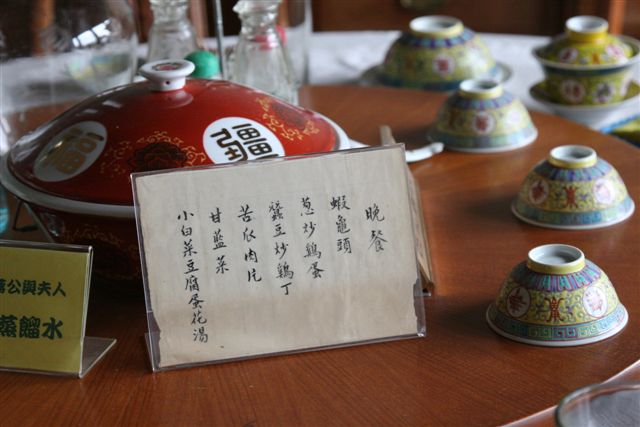 晚餐
蝦龜頭
蔥炒鷄蛋
蠶豆炒鷄丁
苦瓜肉片
甘藍菜
小白菜豆腐蛋花湯
福
疆
公與夫人
蒸餾水